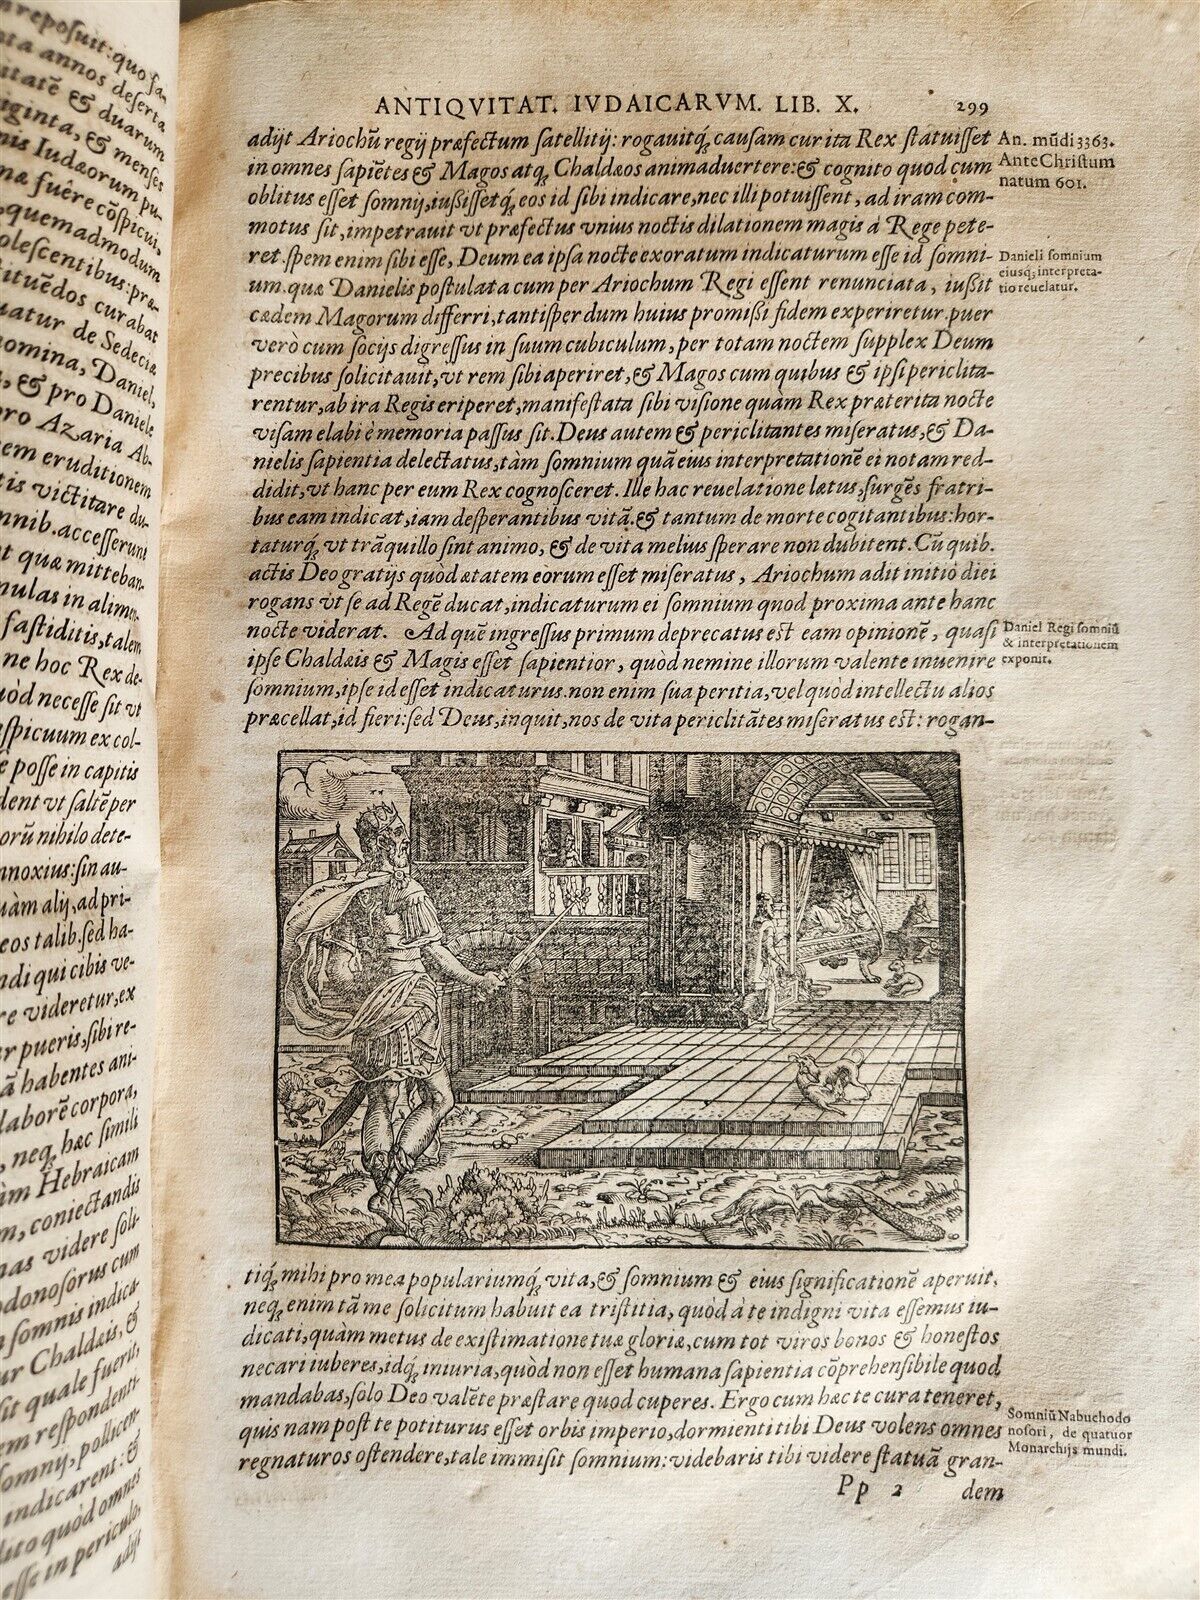 reposuit: quo sa-
annos deserta
& duarum
iginta, & menses
Iudæorum pu-
fuêre cõspicui,
quemadmodum
olescentibus: præ-
ituẽdos curabat
atur de Sedecia
nomina, Daniel,
& pro Daniele
pro Azaria Ab-
em eruditionem
is victitare du-
omnib. accesserunt
quæ mitteban-
mulas in alimen-
fastiditis, talem
ne hoc Rex de-
uòd necesse sit vt
spicuum ex col-
posse in capitis
dent vt saltẽ per
orũ nihilo dete-
nnoxius: sin au-
uàm alij, ad pri-
eos talib. sed ha-
ndi qui cibis ve-
re videretur, ex
pueris, sibi re-
ã habentes ani-
laborẽ corpora,
neq; hæc simili
Hebraicam
m, coniectandis
nas videre soli-
odonosorus cum
somnis indica-
ur Chaldæis, &
sit quale fuerit,
em respondenti-
somnij, pollicen-
indicarent: &
dito quòd omnes
esse in periculo,
adijt
ANTIQVITAT. IVDAICARVM. LIB. X. 299
adijt Ariochũ regij præfectum satellitij: rogauitq; causam cur ita Rex statuisset
in omnes sapiẽtes & Magos atq; Chaldæos animaduertere: & cognito quod cum
oblitus esset somnij, iußißetq; eos id sibi indicare, nec illi potuissent, ad iram com-
motus sit, impetrauit vt præfectus vnius noctis dilationem magis à Rege pete-
ret. spem enim sibi esse, Deum ea ipsa nocte exoratum indicaturum esse id somni-
um. quæ Danielis postulata cum per Ariochum Regi essent renunciata, iußit
cædem Magorum differri, tantisper dum huius promißi fidem experiretur. puer
verò cum socijs digressus in suum cubiculum, per totam noctem supplex Deum
precibus solicitauit, vt rem sibi aperiret, & Magos cum quibus & ipsi periclita-
rentur, ab ira Regis eriperet, manifestata sibi visione quàm Rex præterita nocte
visam elabi è memoria passus sit. Deus autem & periclitantes miseratus, & Da-
nielis sapientia delectatus, tàm somnium quã eius interpretationẽ ei notam red-
didit, vt hanc per eum Rex cognosceret. Ille hac reuelatione lætus, surgẽs fratri-
bus eam indicat, iam desperantibus vitã, & tantum de morte cogitantibus: hor-
taturq; vt trãquillo sint animo, & de vita melius sperare non dubitent. Cũ quib.
actis Deo gratijs quòd ætatem eorum esset miseratus, Ariochum adit initio diei
rogans vt se ad Regẽ ducat, indicaturum ei somnium quod proxima ante hanc
nocte viderat. Ad quẽ ingressus primum deprecatus est eam opinionẽ, quasi
ipse Chaldæis & Magis esset sapientior, quòd nemine illorum valente inuenire
somnium, ipse id esset indicaturus. non enim sua peritia, vel quòd intellectu alios
præcellat, id fieri: sed Deus, inquit, nos de vita periclitãtes miseratus est: rogan-
tiq; mihi pro mea populariumq; vita, & somnium & eius significationẽ aperuit.
neq; enim tã me solicitum habuit ea tristitia, quòd à te indigni vita essemus iu-
dicati, quàm metus de existimatione tuæ gloriæ, cum tot viros bonos & honestos
necari iuberes, idq; iniuria, quòd non esset humana sapientia cõprehensibile quod
mandabas, solo Deo valẽte præstare quod cuperes. Ergo cum hæc te cura teneret,
quis nam post te potiturus esset orbis imperio, dormienti tibi Deus volens omnes
regnaturos ostendere, tale immisit somnium: videbaris tibi videre statuã gran-
Pp 2 dem
An. mũdi 3363.
Ante Christum
natum 601.
Danieli somnium
eiusq; interpreta-
tio reuelatur.
Daniel Regi somniũ
& interpretationem
exponit.
Somniũ Nabuchodo
nosori, de quatuor
Monarchijs mundi.